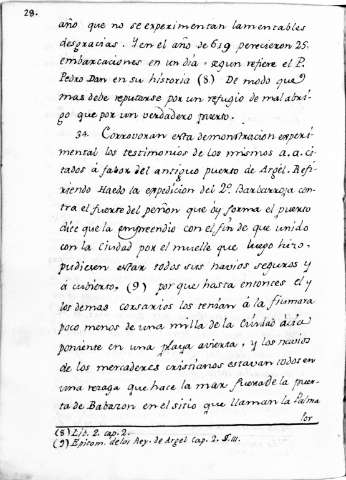 28.
año que no se experimentan lamentables
desgracias. Y en el año de 619 perecieron 25.
embarcaciones en un dia, segun refiere el P.
Pedro Dan en su historia (8) De modo que
mas debe reputarse por un refugio de mal abri-
go que por un verdadero puerto.
34. Corrovoran esta demonstracion experi-
mental los testimonios de los mismos a.a. ci-
tados á fabor del antiguo puerto de Argèl. Refi-
riendo Haedo la expedicion del 2º. Barbarroja con-
tra el fuerte del peñon que oy forma el puerto
dice que la empreendio con el fin de que unido
con la Ciudad por el muelle que luego hizo,
pudiesen estar todos sus navios seguros y
á cubierto, (9) por que hasta entonces el y
los demas corsarios los tenian á la fiumara
poco menos de una milla de la Ciudad acia
poniente en una playa avierta, y los navios
de los mercaderes cristianos estavan todos en
una rezaga que hace la mar fuera de la puer-
ta de Babazon en el sitio que llaman la Palma
lor
(8) Lib. 2. cap. 2.
(9) Epitom. de los Rey. de Argel Cap. 2. §. III.